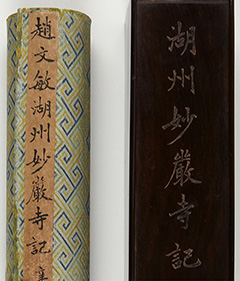 趙文敏湖州妙嚴寺記
湖州妙嚴寺記